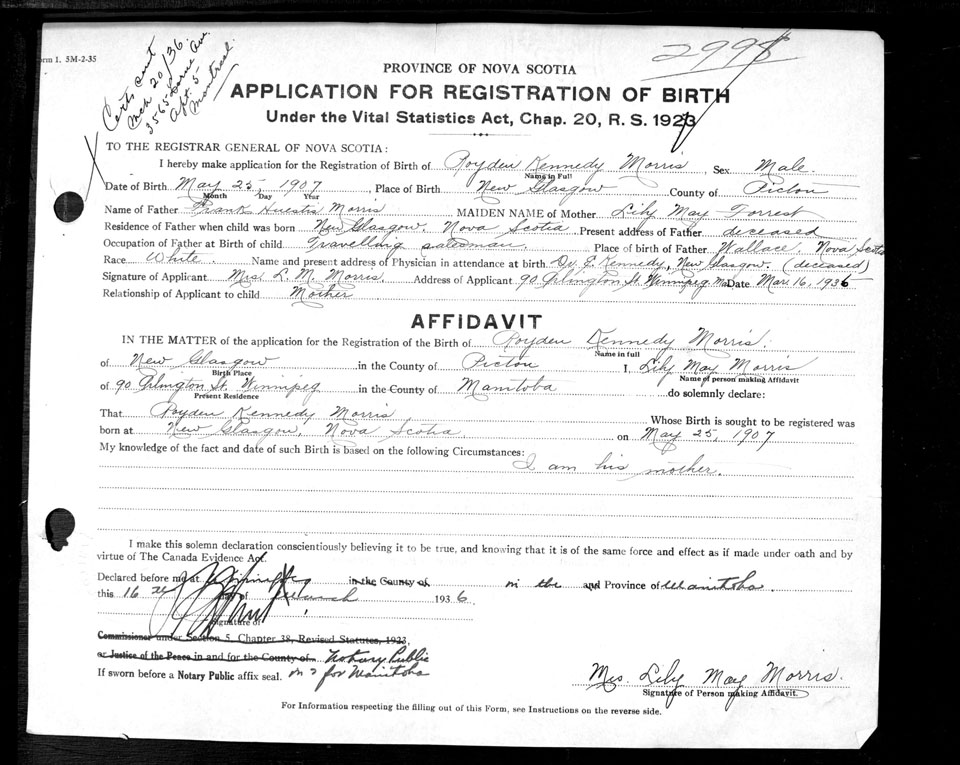 orm 1. 5M-2-35
Certs sent
Mch 20/36.
3565 Lorne Ave.
Apt. 5
Montreal.
2998
PROVINCE OF NOVA SCOTIA
APPLICATION FOR REGISTRATION OF BIRTH
Under the Vital Statistics Act, Chap. 20, R. S. 1923
TO THE REGISTRAR GENERAL OF NOVA SCOTIA:
I hereby make application for the Registration of Birth of Royden Kennedy Morris Sex Male.
Name in Full
Date of Birth May 25, 1907, Place of Birth New Glasgow County of Pictou
Month Day Year
Name of Father Frank Huestis Morris MAIDEN NAME of Mother Lily May Forrest
Residence of Father when child was born New Glasgow. Nova Scotia Present address of Father deceased
Occupation of Father at Birth of child Travelling salesman. Place of birth of Father Wallace, Nova Scotia
Race White. Name and present address of Physician in attendance at birth Dr. E. Kennedy, New Glasgow. (deceased)
Signature of Applicant Mrs. L. M. Morris. Address of Applicant 90 Arlington St. Winnipeg Ma Date Mar. 16, 1936
Relationship of Applicant to child Mother
AFFIDAVIT
IN THE MATTER of the application for the Registration of the Birth of Royden Kennedy Morris.
Name in full
of New Glasgow in the County of Pictou I, Lily May Morris
Birth Place Name of person making Affidavit
of 90 Arlington St. Winnipeg in the County of Manitoba do solemnly declare:
Present Residence
That Royden Kennedy Morris, Whose Birth is sought to be registered was
born at New Glasgow, Nova Scotia. on May 25, 1907
My knowledge of the fact and date of such Birth is based on the following Circumstances:
I am his mother.
I make this solemn declaration conscientiously believing it to be true, and knowing that it is of the same force and effect as if made under oath and by
virtue of The Canada Evidence Act.
Declared before me at Winnipeg in the County of in the and Province of Manitoba
this 16th day of March 1936
Signature of
Commissioner under Section 5, Chapter 38, Revised Statutes, 1923,
or Justice of the Peace in and for the County of Notary Public
If sworn before a Notary Public affix seal. in & for Manitoba
Mrs. Lily May Morris.
Signature of Person making Affidavit.
For Information respecting the filling out of this Form, see Instructions on the reverse side.